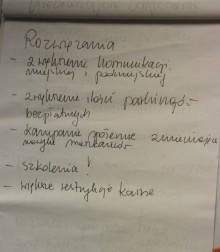 Rozwiązania
- zwiększenie komunikacji
miejskiej i podmiejskiej
- zwiększenie ilości parkingów
bezpłatnych
- kampanie społeczne zmieniające
nawyki mieszkańców
- szkolenia!
- większe restrykcje karne